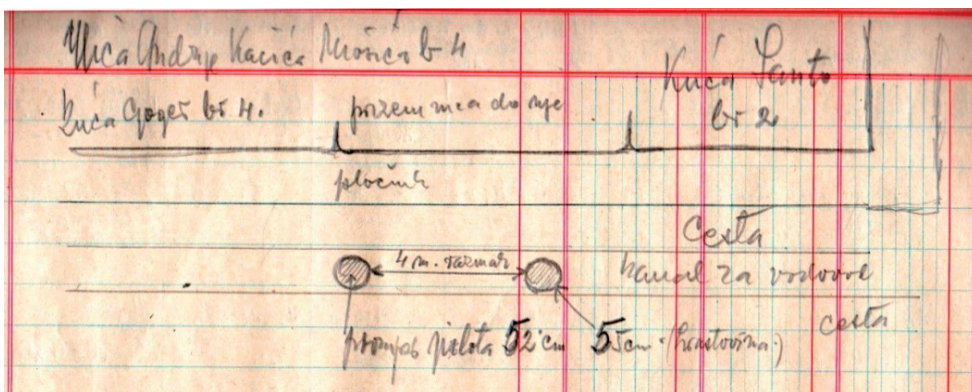 Ulica Andrije Kačića Miošića br 4
Kuća Gogeš br 4.
prizemnica do nje
Kuća Santo
br 2
pločnik
Cesta
4 m. razmak
kanal za vodove
cesta
promjer pilota 52 cm
55 cm (hrastovina)